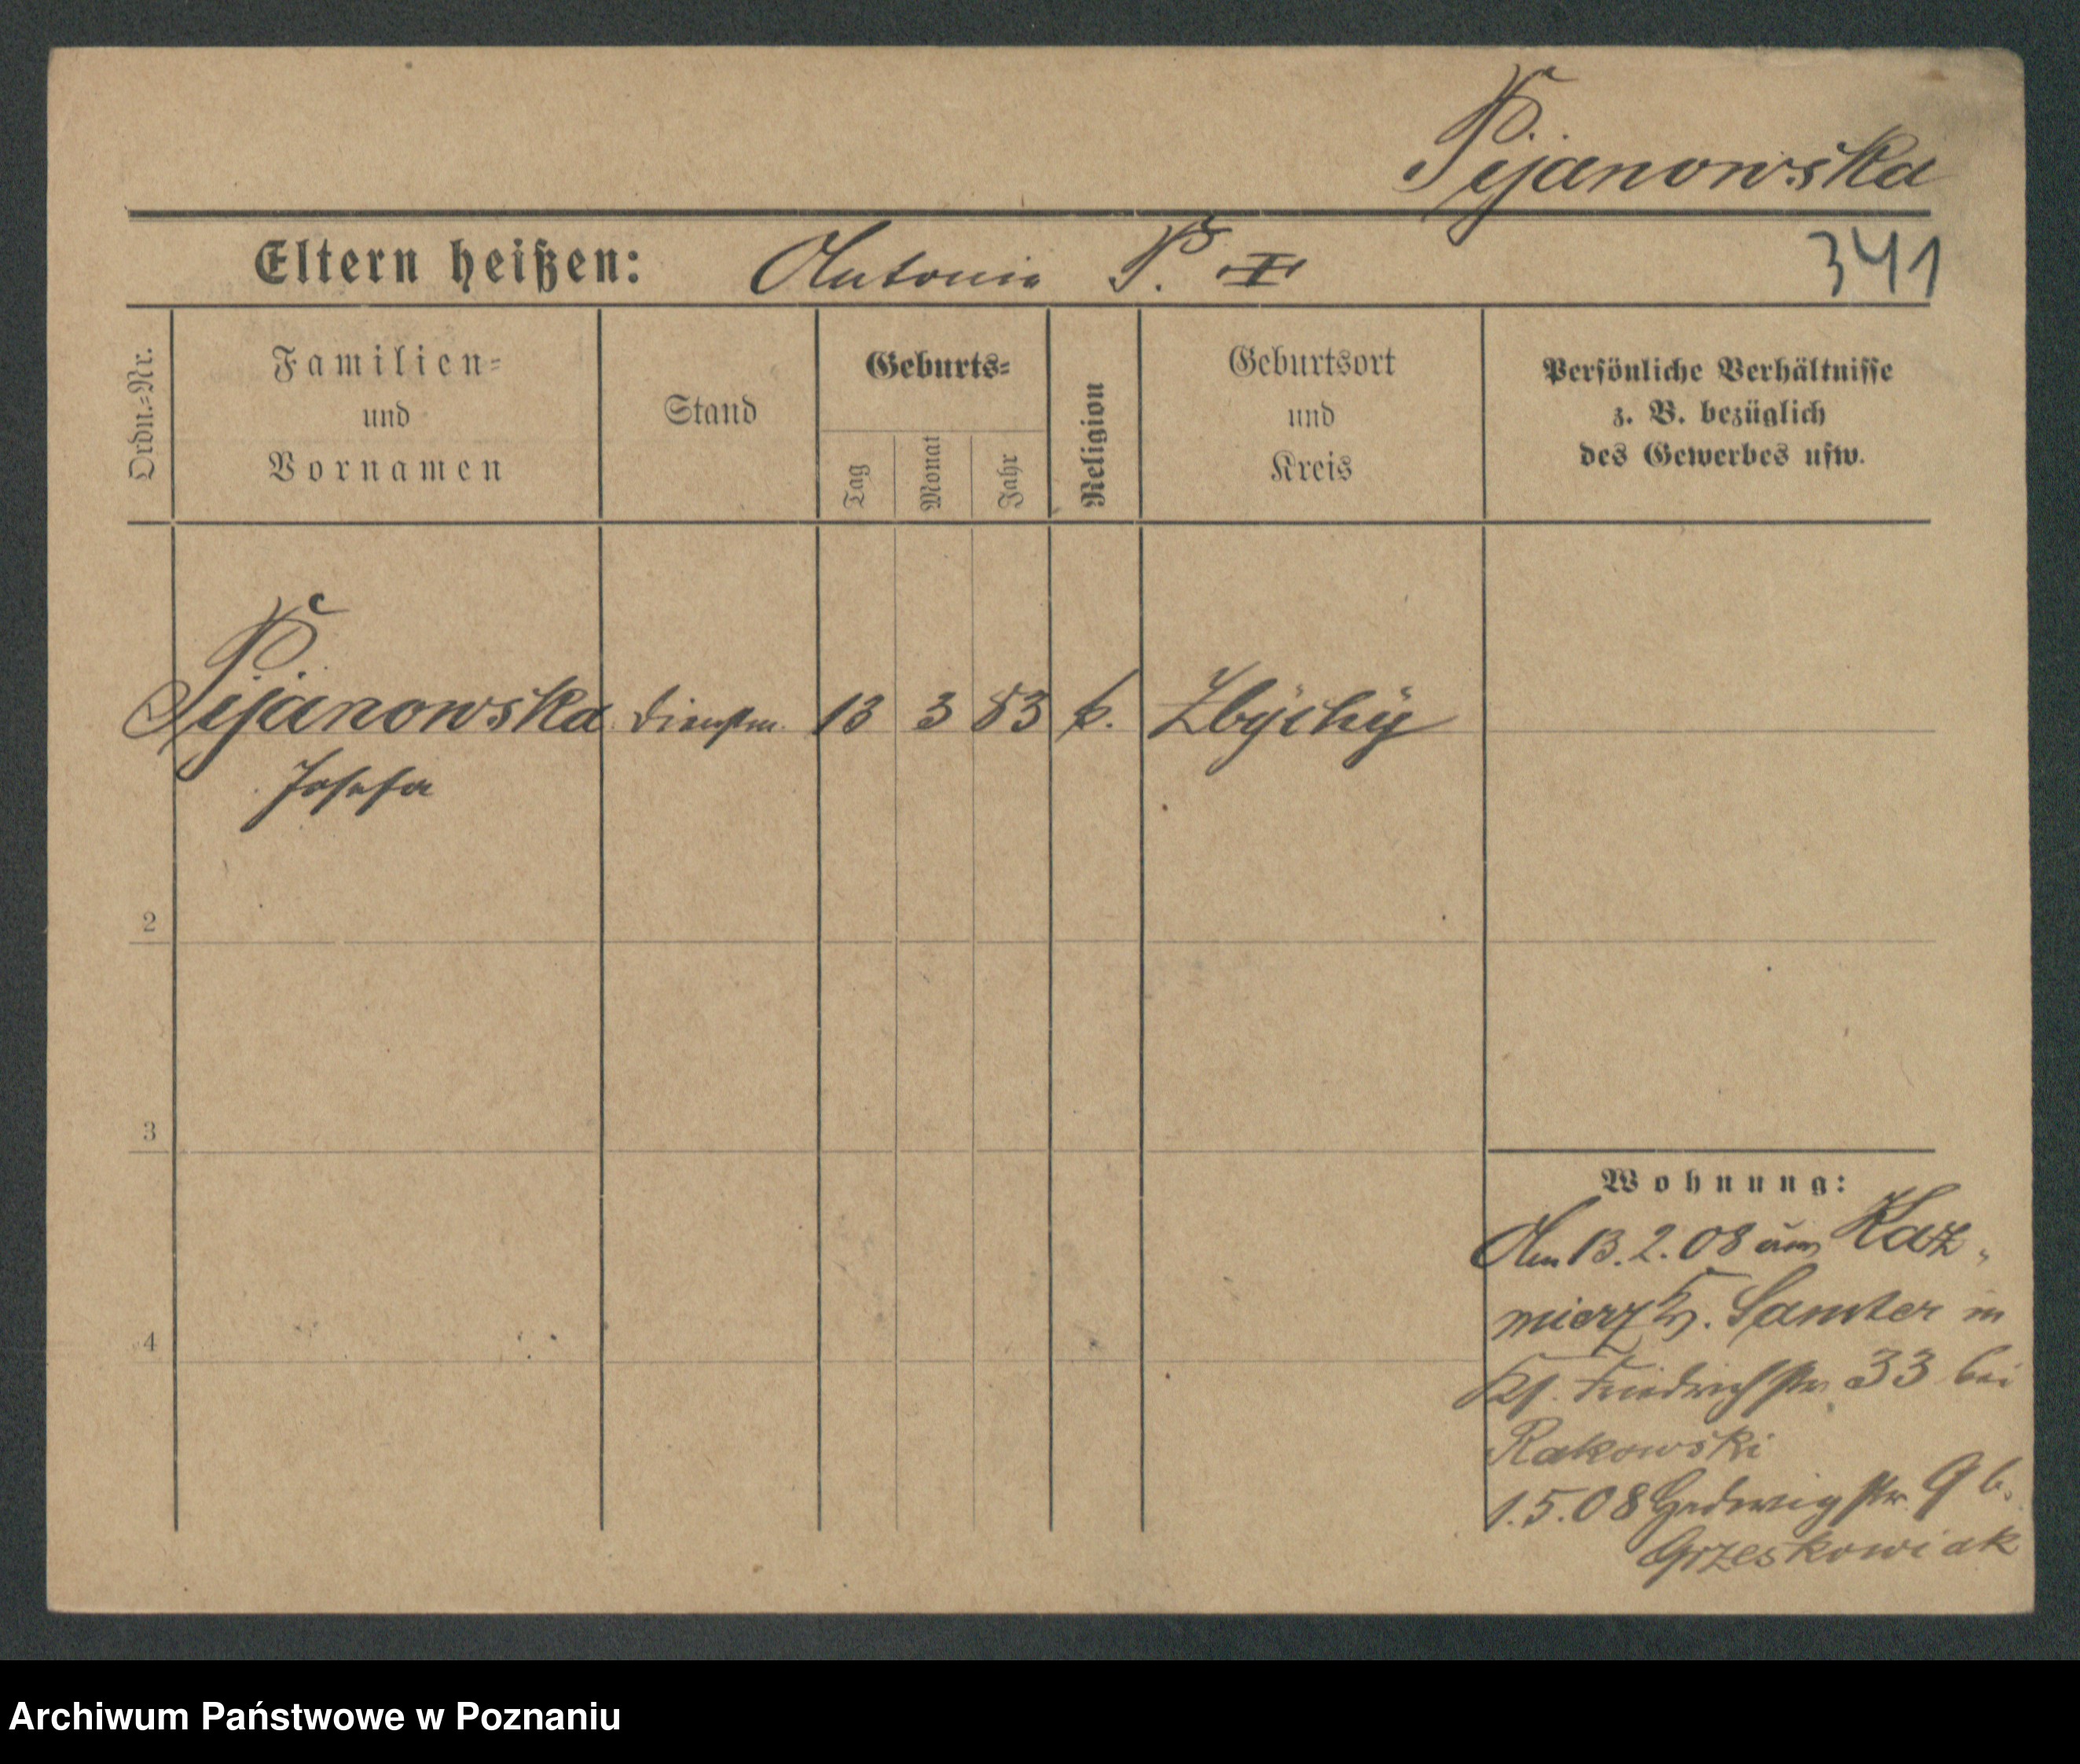 Pijanowska
Eltern heißen: Antonie P. II
341
Ordn.=Nr.
Familien=
und
Vornamen
Stand
Geburts=
Tag
Monat
Jahr
Religion
Geburtsort
und
Kreis
Persönliche Verhältnisse
z. B. bezüglich
des Gewerbes usw.
Pijanowska Dienstm. 13 3 83 k. Zbychy
Josefa
2
3
4
Wohnung:
Am 13.2.08 aus Kaz-
mierz Kr. Samter in
Kl. Friedrichstr. 33 bei
Rakowski
1.5.08 Hedwigstr. 9 b.
Grzeskowiak
Archiwum Państwowe w Poznaniu